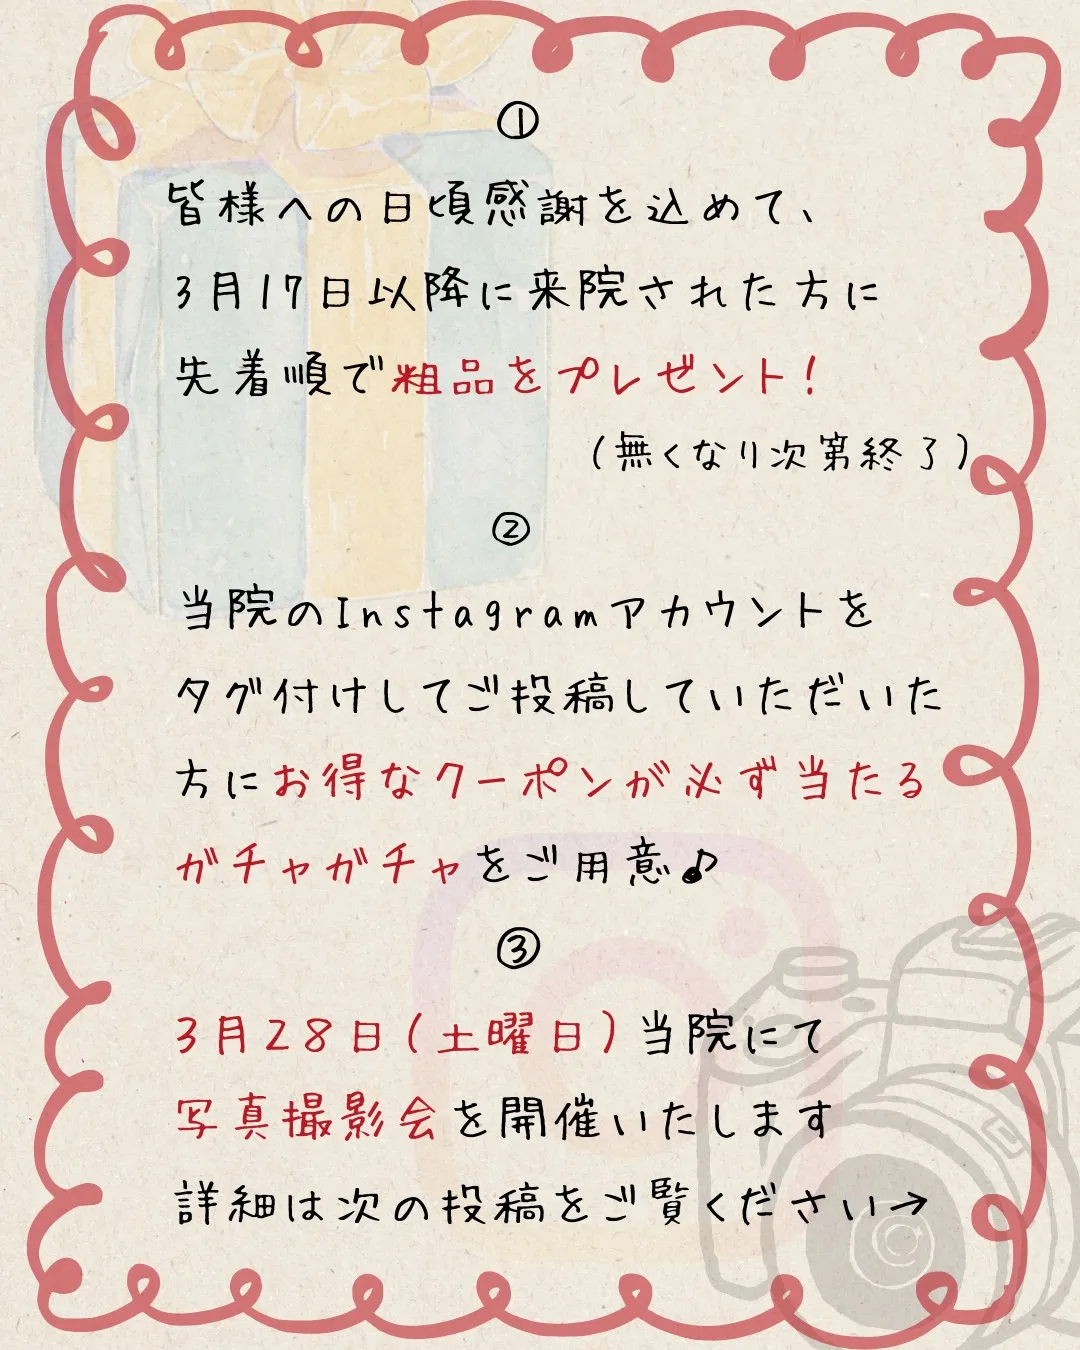 ①
皆様への日頃感謝を込めて、
3月17日以降に来院された方に
先着順で粗品をプレゼント！
（無くなり次第終了）
②
当院のInstagramアカウントを
タグ付けしてご投稿していただいた
方にお得なクーポンが必ず当たる
ガチャガチャをご用意♪
③
3月28日(土曜日)当院にて
写真撮影会を開催いたします
詳細は次の投稿をご覧ください→